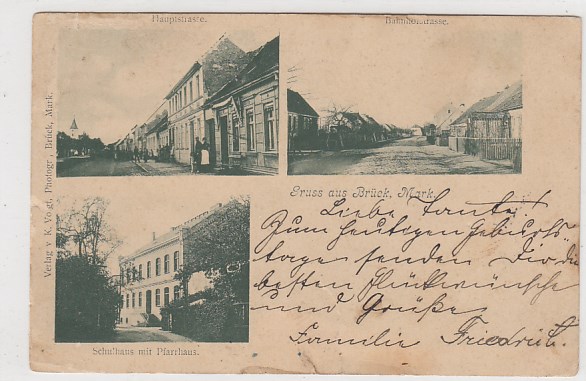 Hauptstrasse.
Bahnhofstrasse.
Verlag v K. Voigt, Photogr., Brück, Mark.
Gruss aus Brück, Mark.
Liebe Tante!
Zum heutigen Geburts-
tage senden Dir die
besten Glückwünsche
und Grüße
Familie Friedrich.
Schulhaus mit Pfarrhaus.